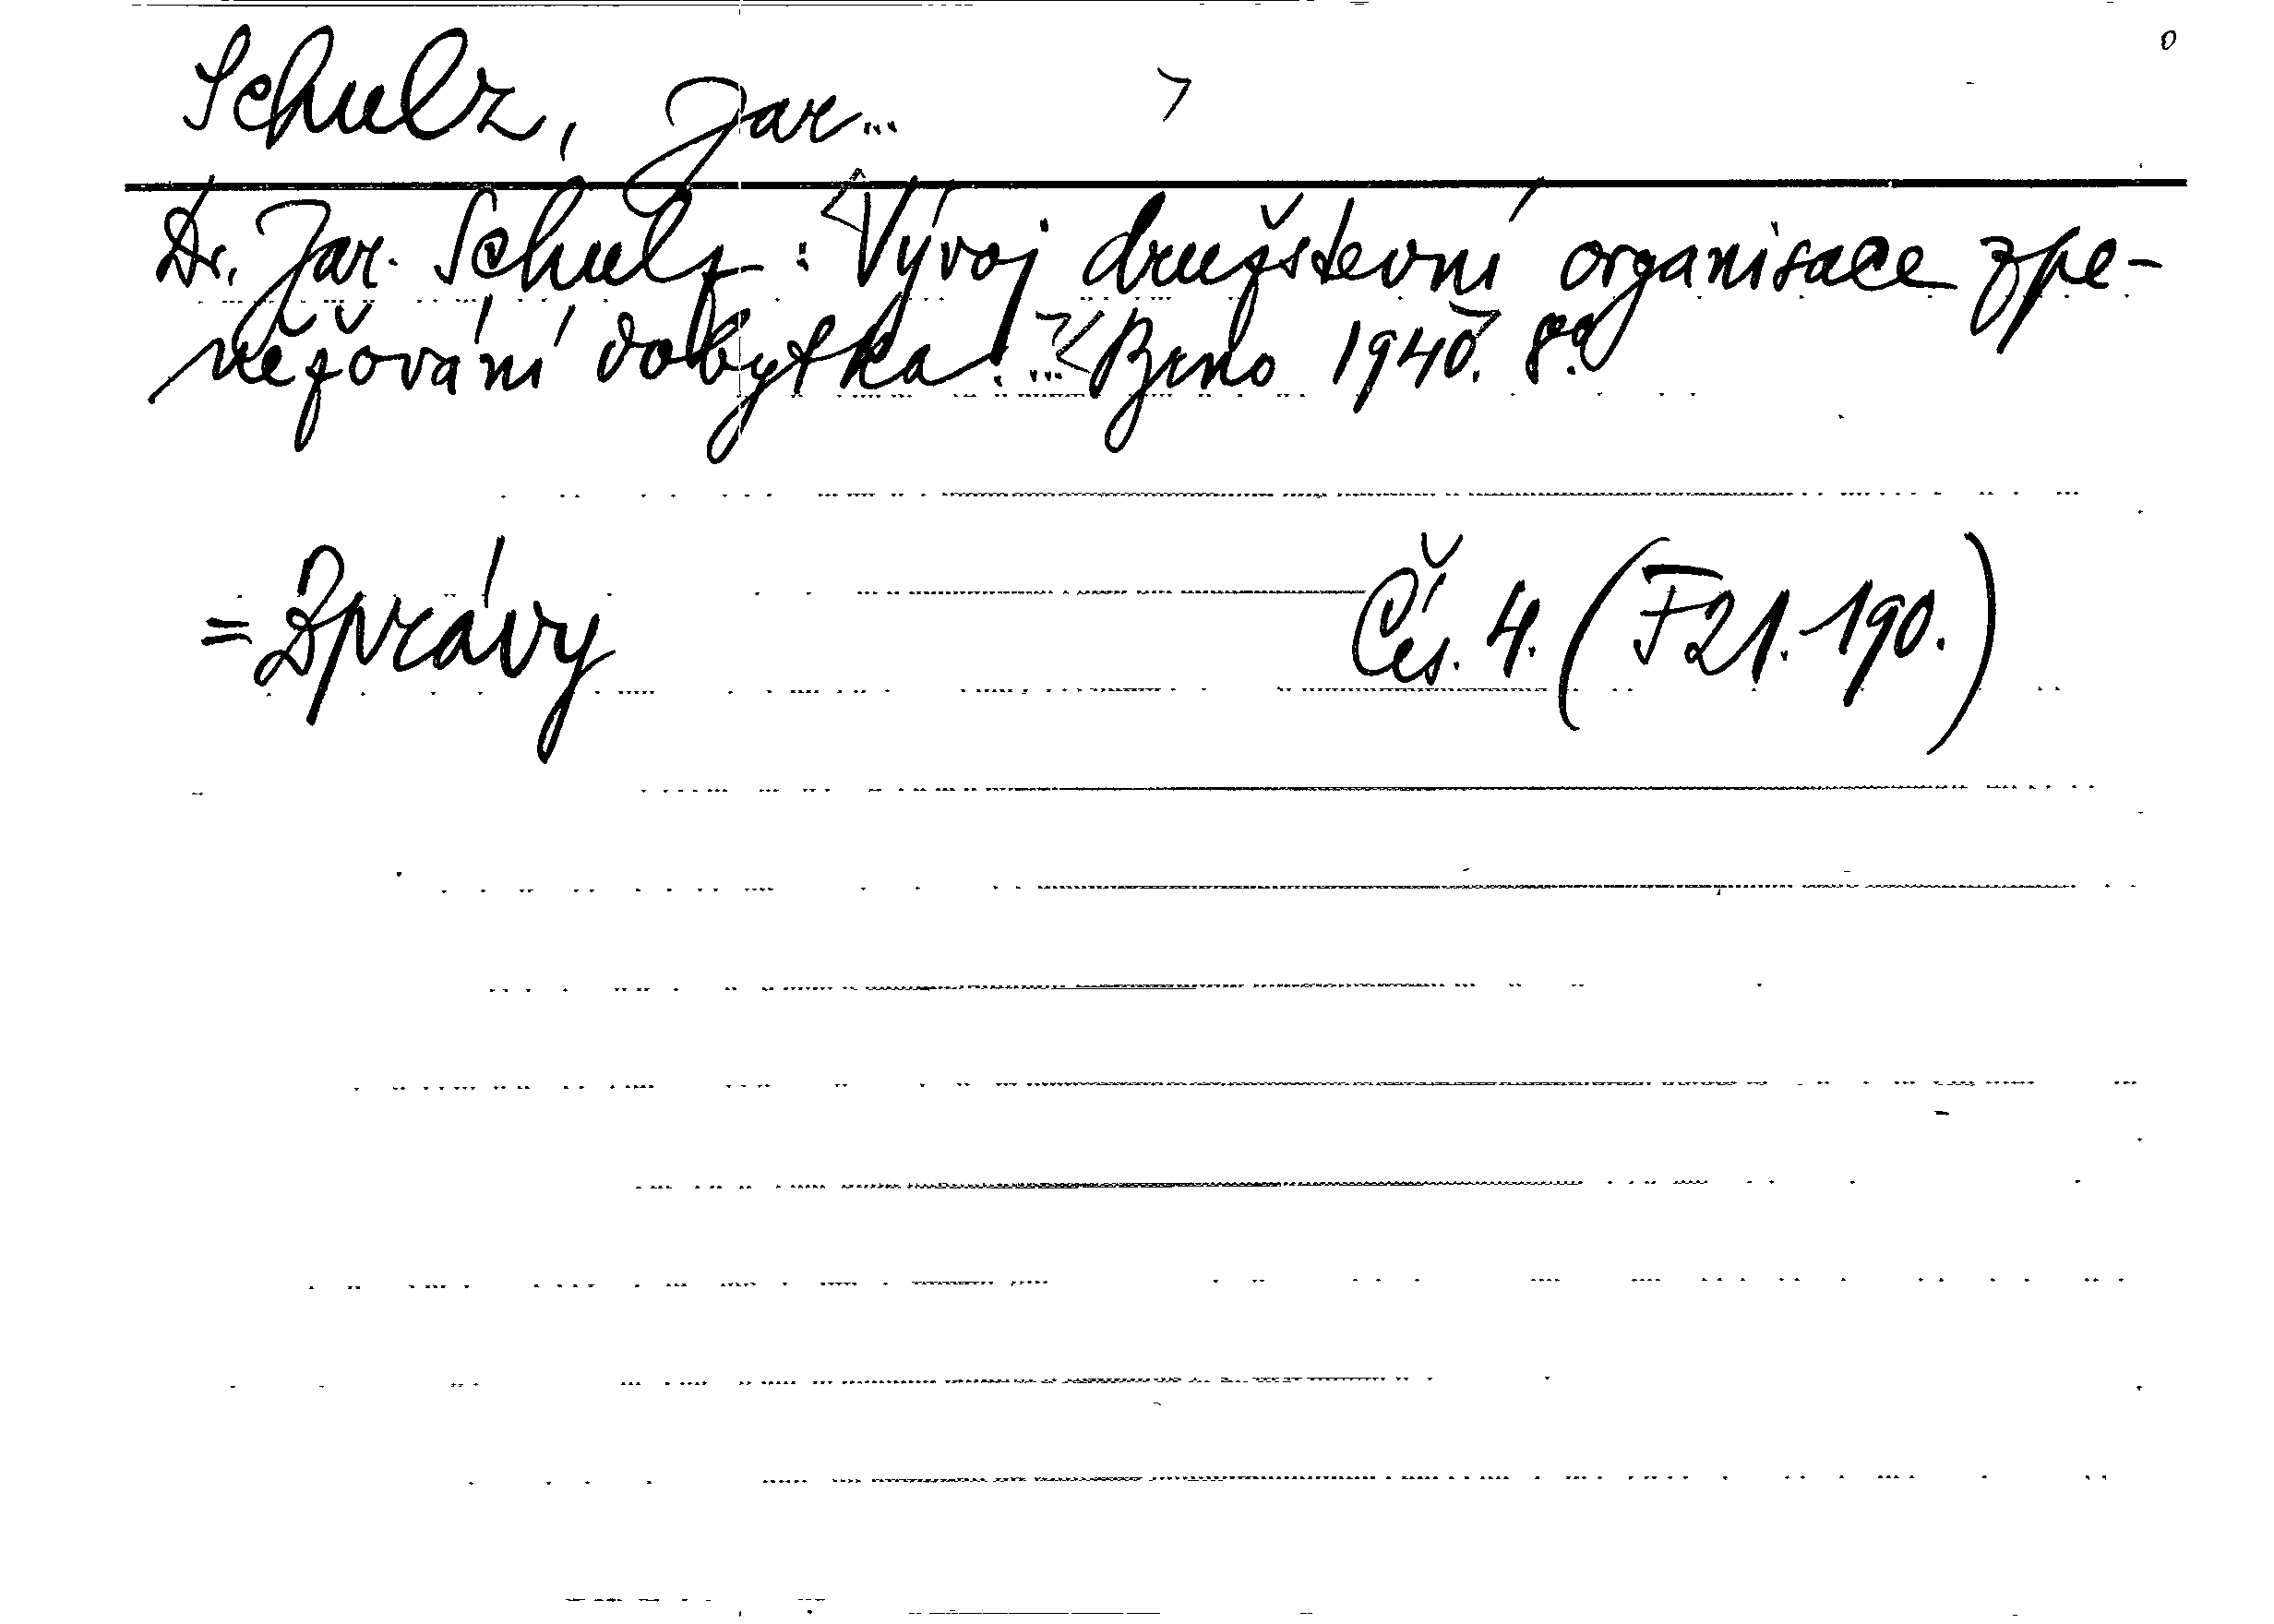 Schulz, Jar...
Dr. Jar. Schulz: Vývoj družstevní organisace zpe-
něžování dobytka. ... Brno 1940. 8°.
= Zprávy Čís. 4. (F21.190.)